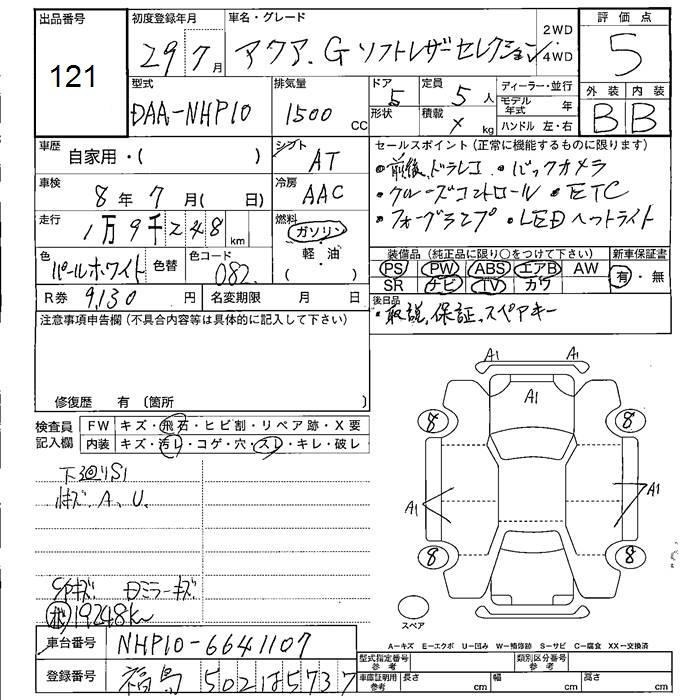 出品番号
121
初度登録年月
29 7 月
車名・グレード
アクア.G ソフトレザーセレクション
2WD
4WD
評価点
5
型式
DAA-NHP10
排気量
1500 CC
ドア 5
形状
定員 5 人
積載 × kg
ディーラー・並行
モデル年式 年
ハンドル 左・右
外装 内装
B B
車歴
自家用・( )
シフト
AT
セールスポイント (正常に機能するものに限ります)
・前後、ドラレコ ・バックカメラ
・クルーズコントロール ・ETC
・フォーグランプ ・LEDヘットライト
車検
8 年 7 月( 日)
冷房
AAC
走行
1万9千248 km
燃料
ガソリン
軽・油
( )
色
パールホワイト
色替
色コード
082
装備品 (純正品に限り○をつけて下さい)
PS PW ABS エアB AW
SR ナビ TV カワ
新車保証書
有・無
R券 9,130 円
名変期限 月 日
後日品
・取説、保証、スペアキー
注意事項申告欄 (不具合内容等は具体的に記入して下さい)
修復歴 有 (箇所 )
検査員
記入欄
FW キズ・飛石・ヒビ割・リペア跡・X要
内装 キズ・汚レ・コゲ・穴・スレ・キレ・破レ
下廻りS1
キズ.A、U.
ミラーキズ
19248km
車台番号 NHP10-6641107
登録番号 福島 502 ほ 5737
A1 A1
A1
8 8
A1 A1
8 8
スペア
A-キズ E-エクボ U-凹み W-補修跡 S-サビ C-腐食 XX-交換済
型式指定番号
参考
類別区分番号
参考
車庫証明用
参考
長さ cm 幅 cm 高さ cm